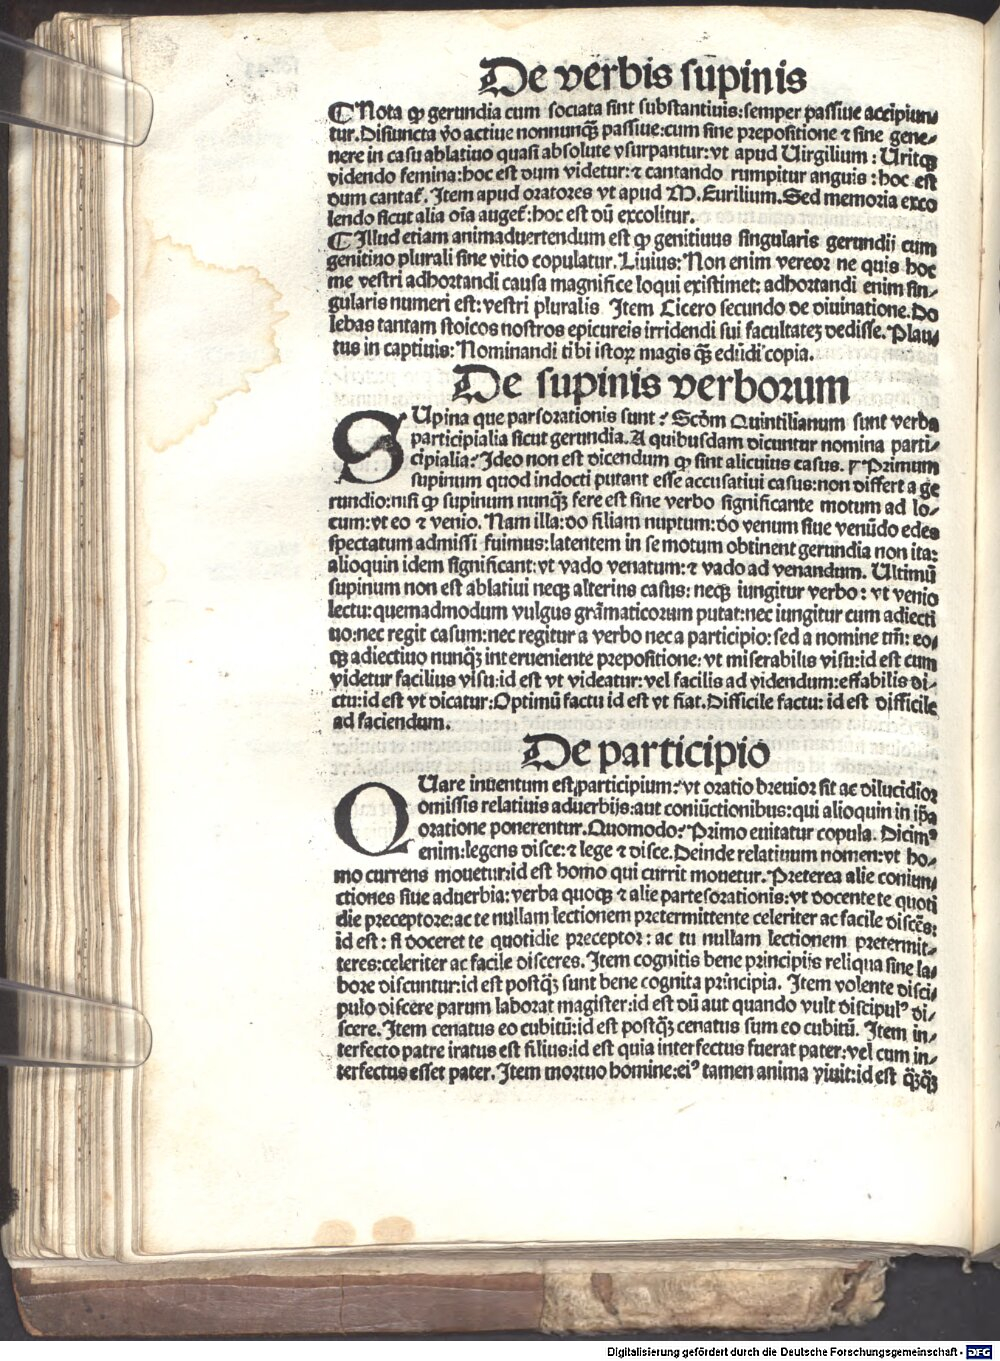 De verbis supinis
¶ Nota ꝙ gerundia cum sociata sint substantiuis: semper passiue accipiun⸗
tur. Disiuncta v̓o actiue nonnunq̃ꝫ passiue: cum sine prepositione ⁊ sine gene⸗
nere in casu ablatiuo quasi absolute vsurpantur: vt apud Uirgilium: Uritqꝫ
videndo femina: hoc est dum videtur: ⁊ cantando rumpitur anguis: hoc est
dum cantat̃. Item apud oratores vt apud M. Eurilium. Sed memoria exco
lendo sicut alia oĩa auget̃: hoc est dũ excolitur.
¶ Illud etiam animaduertendum est ꝙ genitiuus singularis gerundii cum
genitiuo plurali sine vitio copulatur. Liuius: Non enim vereor ne quis hoc
me vestri adhortandi causa magnifice loqui existimet: adhortandi enim sin⸗
gularis numeri est: vestri pluralis. Item Cicero secundo de diuinatione. Do
lebas tantam stoicos nostros epicureis irridendi sui facultateꝫ dedisse. Plau⸗
tus in captiuis: Nominandi tibi istoꝝ magis q̃ꝫ edũdi copia.
De supinis verborum
SUpina que pars orationis sunt? Scđm Quintilianum sunt verba
participialia sicut gerundia. A quibusdam dicuntur nomina parti⸗
cipialia? Ideo non est dicendum ꝙ sint alicuius casus. Primum
supinum quod indocti putant esse accusatiui casus: non differt a ge
rundio: nisi ꝙ supinum nunq̃ꝫ fere est sine verbo significante motum ad lo⸗
cum: vt eo ⁊ venio. Nam illa: do filiam nuptum: do venum siue venũdo edes
spectatum admissi fuimus: latentem in se motum obtinent gerundia non ita:
alioquin idem significant: vt vado venatum: ⁊ vado ad venandum. Ultimũ
supinum non est ablatiui neqꝫ alterius casus: neqꝫ iungitur verbo: vt venio
lectu: quemadmodum vulgus grãmaticorum putat: nec iungitur cum adiecti
uo: nec regit casum: nec regitur a verbo nec a participio: sed a nomine tm̃: eo⸗
qꝫ adiectiuo nunq̃ꝫ interueniente prepositione: vt miserabilis visu: id est cum
videtur facilius visu: id est vt videatur: vel facilis ad videndum: effabilis di⸗
ctu: id est vt dicatur: Optimũ factu id est vt fiat. Difficile factu: id est difficile
ad faciendum.
De participio
QUare inuentum est participium? vt oratio breuior sit ac dilucidior
omissis relatiuis aduerbijs: aut coniũctionibus: qui alioquin in ip̃a
oratione ponerentur. Quomodo? Primo euitatur copula. Dicimꝰ
enim: legens disce: ⁊ lege ⁊ disce. Deinde relatiuum nomen: vt ho⸗
mo currens mouetur: id est homo qui currit mouetur. Preterea alie coniun⸗
ctiones siue aduerbia: verba quoqꝫ ⁊ alie partes orationis: vt docente te quoti
die preceptore: ac te nullam lectionem pretermittente celeriter ac facile discẽs:
id est: si doceret te quotidie preceptor: ac tu nullam lectionem pretermit⸗
teres: celeriter ac facile disceres. Item cognitis bene principijs reliqua sine la⸗
bore discuntur: id est postq̃ꝫ sunt bene cognita principia. Item volente disci⸗
pulo discere parum laborat magister: id est dũ aut quando vult discipulꝰ di⸗
scere. Item cenatus eo cubitũ: id est postq̃ꝫ cenatus sum eo cubitũ. Item in⸗
terfecto patre iratus est filius: id est quia interfectus fuerat pater: vel cum in⸗
terfectus esset pater. Item mortuo homine: eiꝰ tamen anima viuit: id est q̃ꝫq̃ꝫ
Digitalisierung gefördert durch die Deutsche Forschungsgemeinschaft - DFG